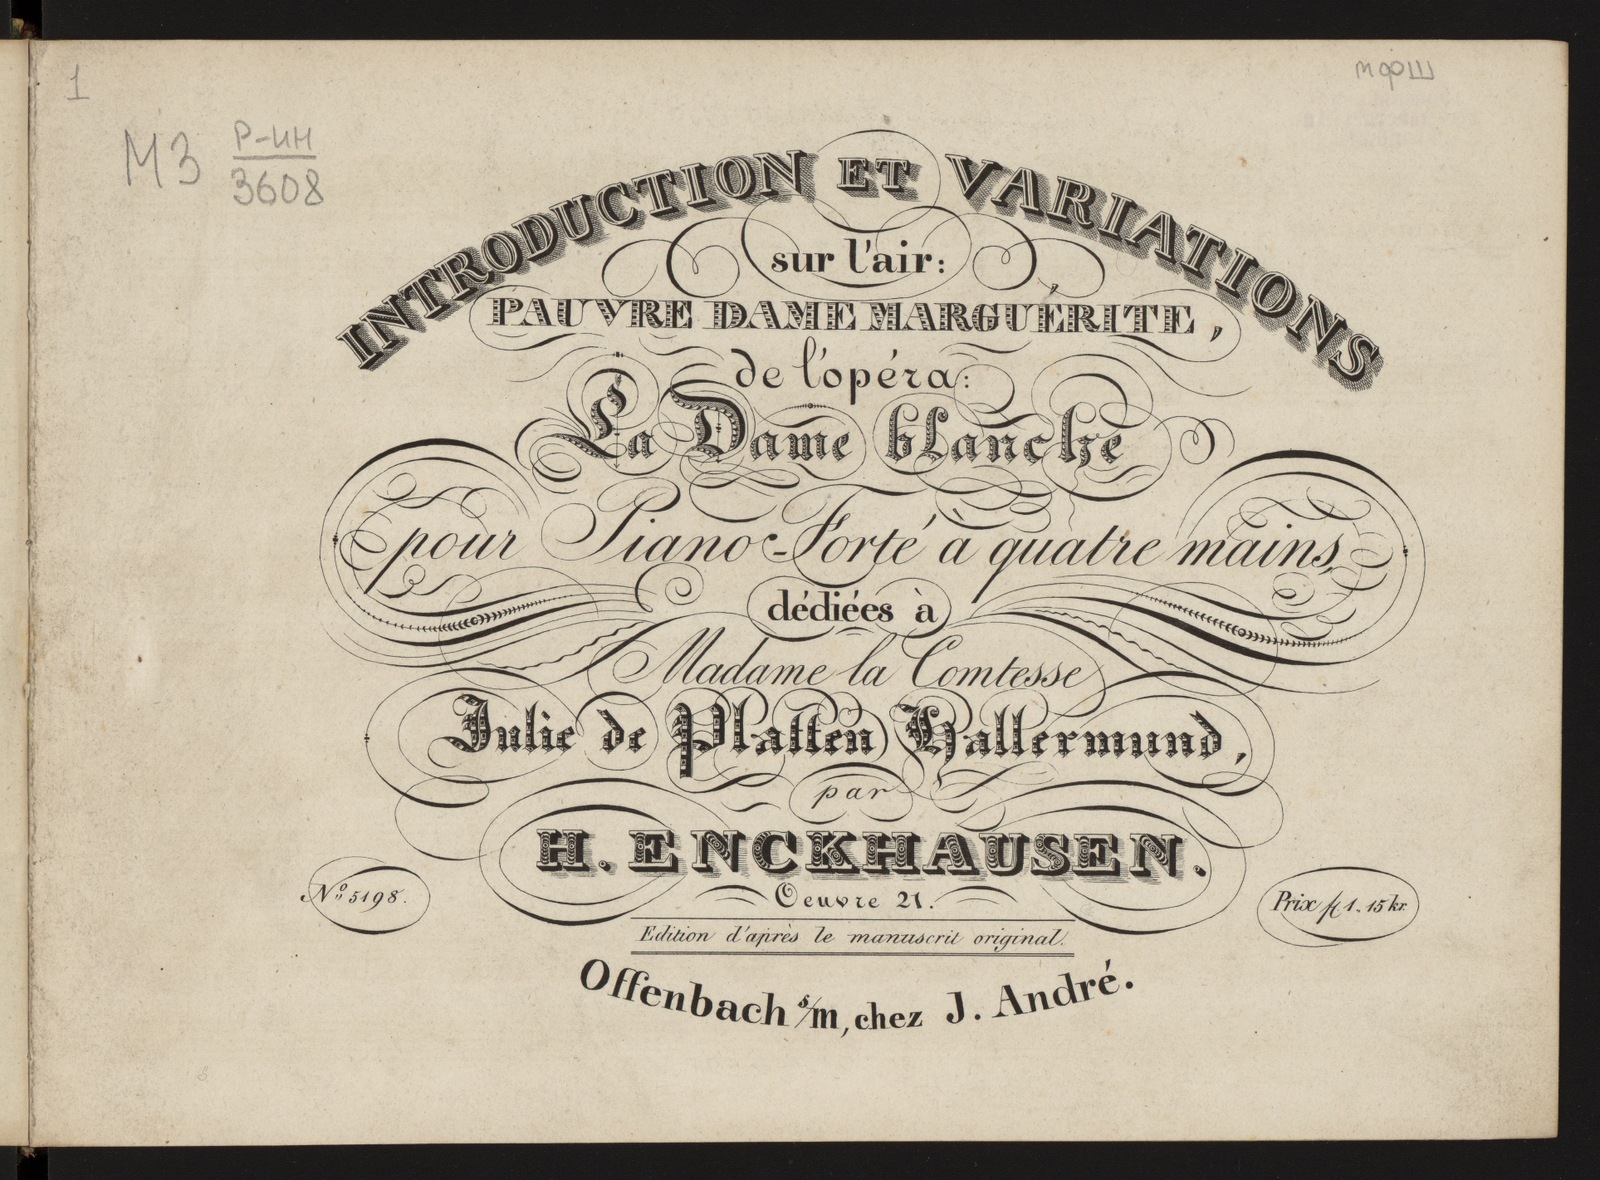 1
мфш
МЗ Р-ин
3608
INTRODUCTION ET VARIATIONS
sur l'air:
PAUVRE DAME MARGUÉRITE,
de l'opéra:
La Dame blanche
pour Piano-Forté à quatre mains,
dédiées à
Madame la Comtesse
Julie de Platten Hallermund,
par
H. ENCKHAUSEN.
Oeuvre 21.
No 5198.
Prix f 1. 15 kr.
Edition d'après le manuscrit original.
Offenbach s/m, chez J. André.